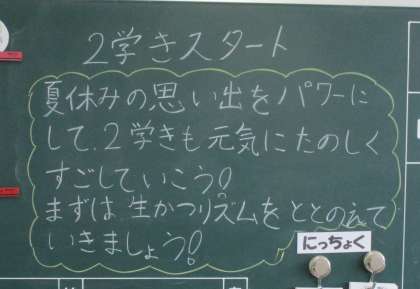 2学きスタート
夏休みの思い出をパワーに
して、2学きも元気にたのしく
すごしていこう!
まずは生かつリズムをととのえて
いきましょう!
にっちょく